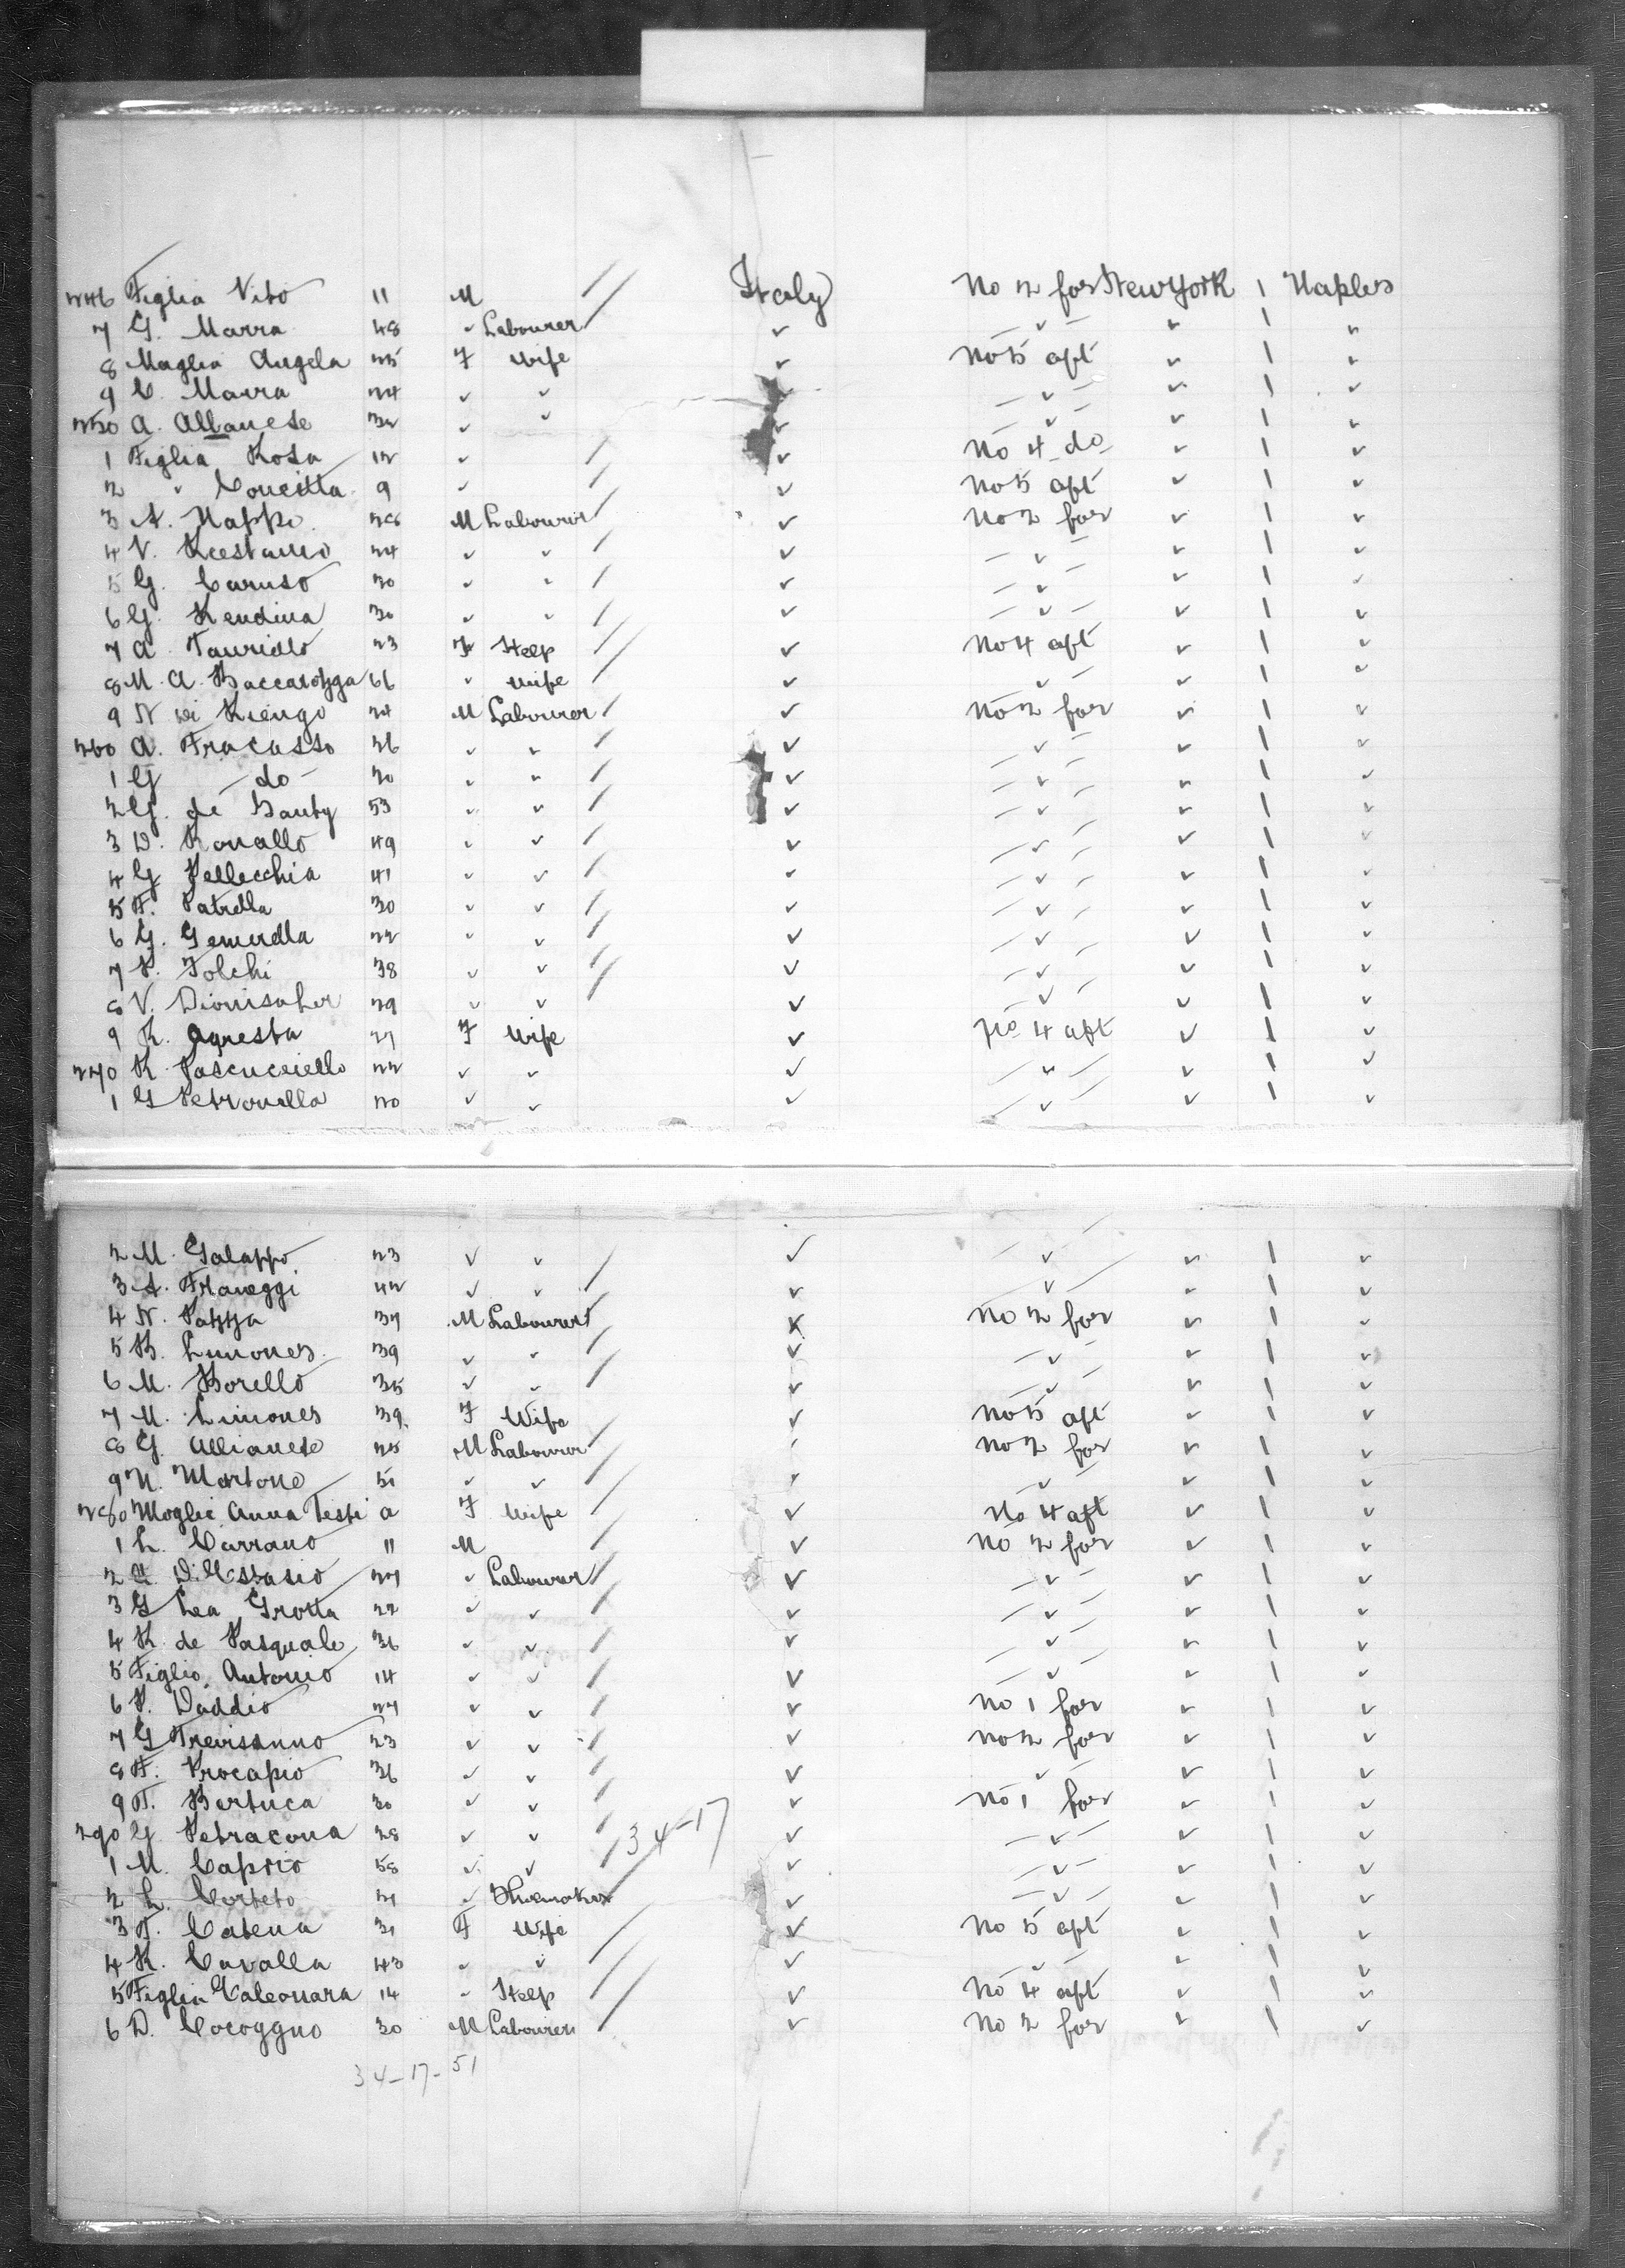 246 Figlia Vito 11 M Italy No 2 for New York 1 Naples
7 G. Marra 48 " Labourer " " " 1 "
8 Moglia Angela 25 F Wife " No 5 aft " 1 "
9 C. Marra 24 " " " " " 1 "
250 A. Albanese 32 " " " " 1 "
1 Figlia Rosa 12 " " No 4 do " 1 "
2 " Concetta 9 " " No 5 aft " 1 "
3 A. Nappo 28 M Labourer " No 2 for " 1 "
4 V. 24 " " " " " 1 "
5 G. Caruso 20 " " " " " 1 "
6 G. Rendina 30 " " " " " 1 "
7 A. Tauriello 23 F Help " No 4 aft " 1 "
8 M. A. 66 " Wife " " " 1 "
9 N. Di Rienzo 24 M Labourer " No 2 for " 1 "
260 A. Fracasso 26 " " " " " 1 "
1 G do 20 " " " " " 1 "
2 G. de 53 " " " " " 1 "
3 D. Ronallo 49 " " " " " 1 "
4 G Pellecchia 41 " " " " " 1 "
5 F. Patrella 30 " " " " " 1 "
6 G. Gemerella 22 " " " " " 1 "
7 P. Folchi 38 " " " " " 1 "
8 V. 29 " " " " " 1 "
9 R. Agresta 27 F Wife " No 4 aft " 1 "
270 R. Pascucciello 22 " " " " " 1 "
1 G Petronella 20 " " " " " 1 "
2 M. Galappo 23 " " " " " 1 "
3 A. Franeggi 42 " " " " " 1 "
4 N. Pazza 37 M Labourer " No 2 for " 1 "
5 B. Limones 39 " " " " " 1 "
6 M. Borello 35 " " " " " 1 "
7 M. Limones 39 F Wife " No 5 aft " 1 "
8 G. Allianese 25 M Labourer " No 2 for " 1 "
9 N. Martone 51 " " " " " 1 "
280 Moglie Anna Testi a F Wife " No 4 aft " 1 "
1 L. Carrano 11 M " No 2 for " 1 "
2 27 " Labourer " " " 1 "
3 G Lea Grotta 22 " " " " " 1 "
4 R. de Pasquale 36 " " " " " 1 "
5 Figlio Antonio 14 " " " " " 1 "
6 P. Daddio 27 " " " No 1 for " 1 "
7 G Trevisanno 23 " " " No 2 for " 1 "
8 F. Procapio 36 " " " " " 1 "
9 F. Bertuca 30 " " " No 1 for " 1 "
290 G. Petracona 28 " " 34-17 " " " 1 "
1 M. Caprio 58 " " " " " 1 "
2 L. Corteto 21 " Shoemaker " " " 1 "
3 F. Catena 31 F Wife " No 5 aft " 1 "
4 R. Cavalla 43 " " " " " 1 "
5 Figlia Caleonara 14 " Help " No 4 aft " 1 "
6 D. Cocoggno 30 M Labourer " No 2 for " 1 "
34-17-51